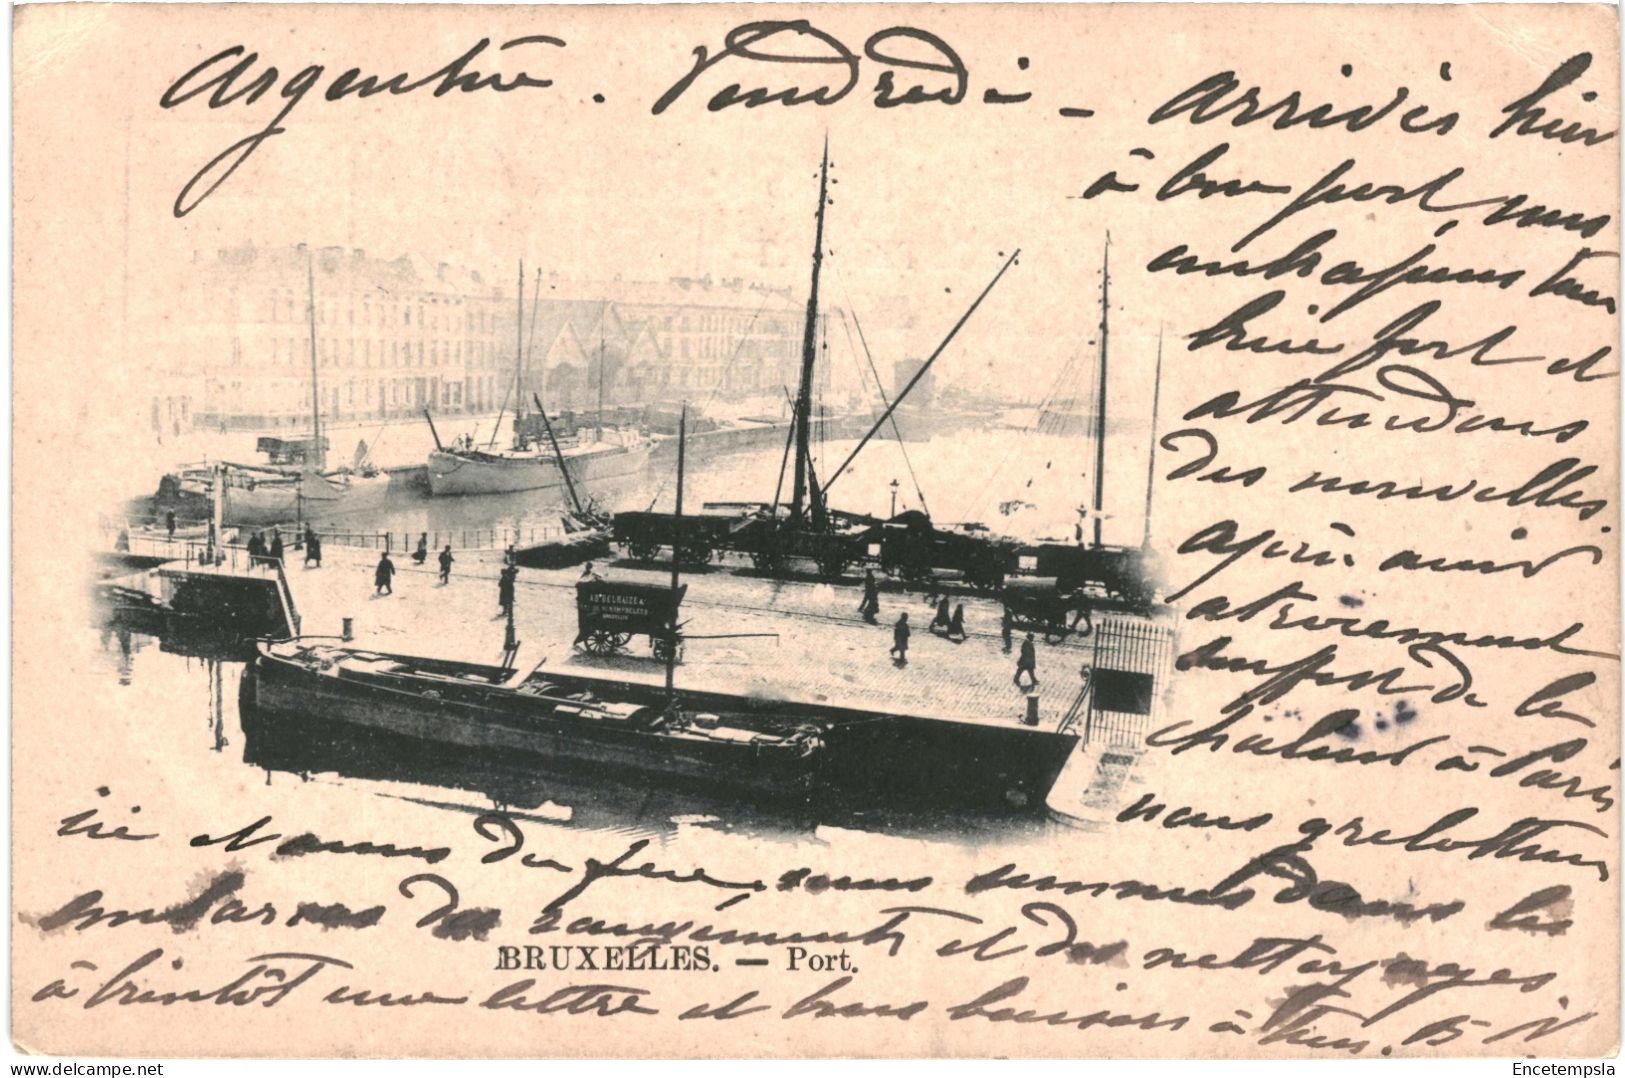 Argentière. Vendredi - Arrivés hier
à bon port, nous
embrassons tous
bien fort et
attendons
des nouvelles.
après avoir
atrocement
souffert de la
chaleur à Paris
nous grelottons
ici et nous du feu, nous sommes dans les
embarras de rangements et des nettoyages
à bientôt une lettre et bons baisers à tous.
AD DELHAIZE &
BRUXELLES
BRUXELLES. — Port.
delcampe.net
Encetempsla